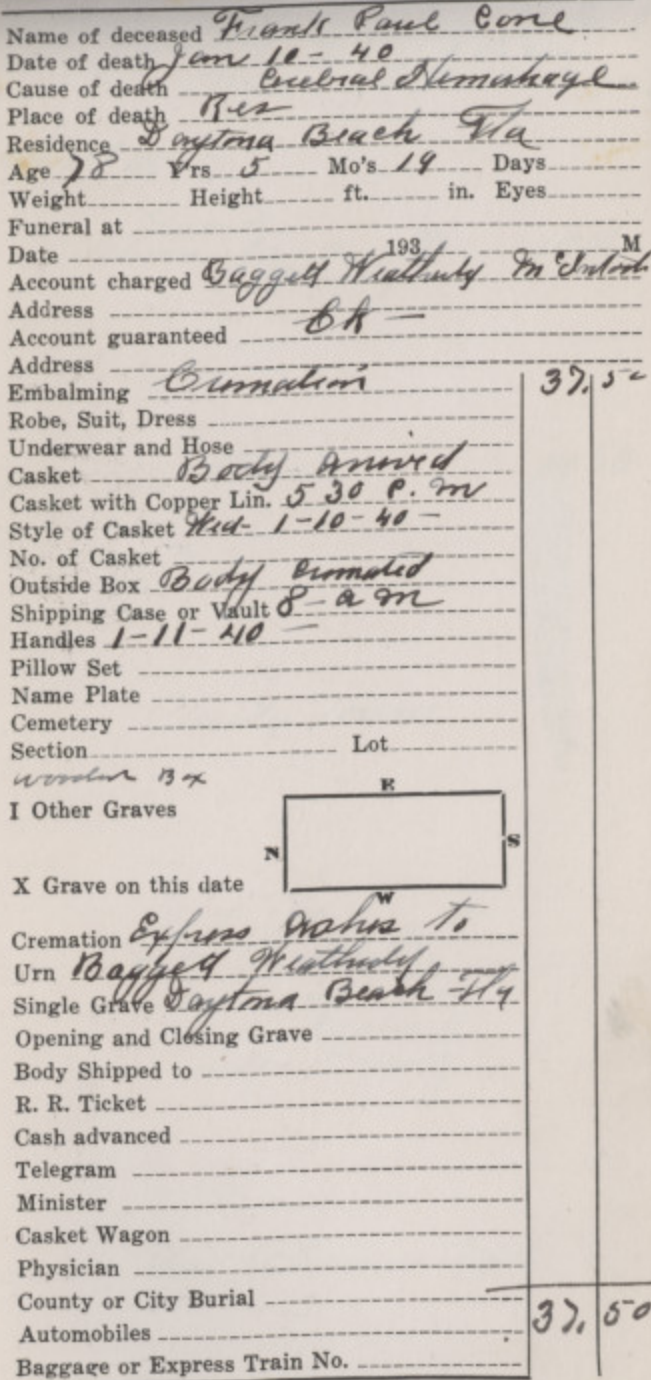 Name of deceased Frank Paul Cone
Date of death Jan 10 - 40
Cause of death Cerebral Hemorrhage
Place of death Res
Residence Daytona Beach Fla
Age 78 Yrs 5 Mo's 19 Days
Weight Height ft. in. Eyes
Funeral at
Date 193 M
Account charged Baggett Weatherby McIntosh
Address
Account guaranteed Ck -
Address
Embalming Cremation 37.50
Robe, Suit, Dress
Underwear and Hose
Casket Body arrived
Casket with Copper Lin. 5 30 P. m
Style of Casket Wed - 1-10-40 -
No. of Casket
Outside Box Body Cremated
Shipping Case or Vault 8 - a m
Handles 1-11-40 -
Pillow Set
Name Plate
Cemetery
Section Lot
wooden Box
E
I Other Graves
N S
X Grave on this date
W
Cremation Express Ashes to
Urn Baggett Weatherby
Single Grave Daytona Beach Fla
Opening and Closing Grave
Body Shipped to
R. R. Ticket
Cash advanced
Telegram
Minister
Casket Wagon
Physician
County or City Burial
Automobiles 37.50
Baggage or Express Train No.